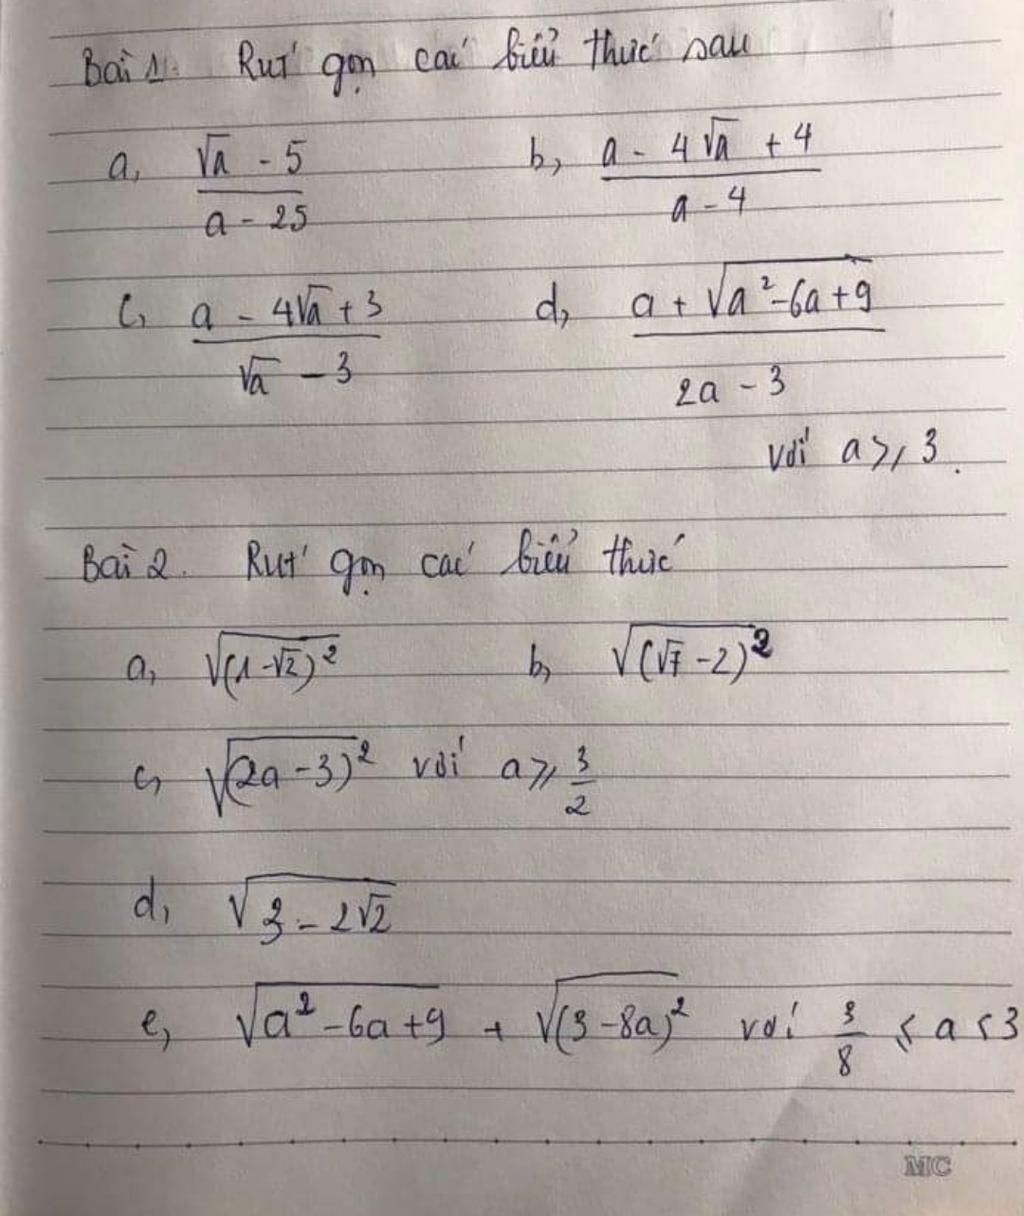 Bài 1. Rút gọn các biểu thức sau
a, (√a - 5)/(a - 25) b, (a - 4√a + 4)/(a - 4)
c, (a - 4√a + 3)/(√a - 3) d, (a + √(a² - 6a + 9))/(2a - 3)
với a ≥ 3.
Bài 2. Rút gọn các biểu thức
a, √((1 - √2)²) b, √((√7 - 2)²)
c, √((2a - 3)²) với a ≥ 3/2
d, √(3 - 2√2)
e, √(a² - 6a + 9) + √((3 - 8a)²) với 3/8 ≤ a < 3
MC